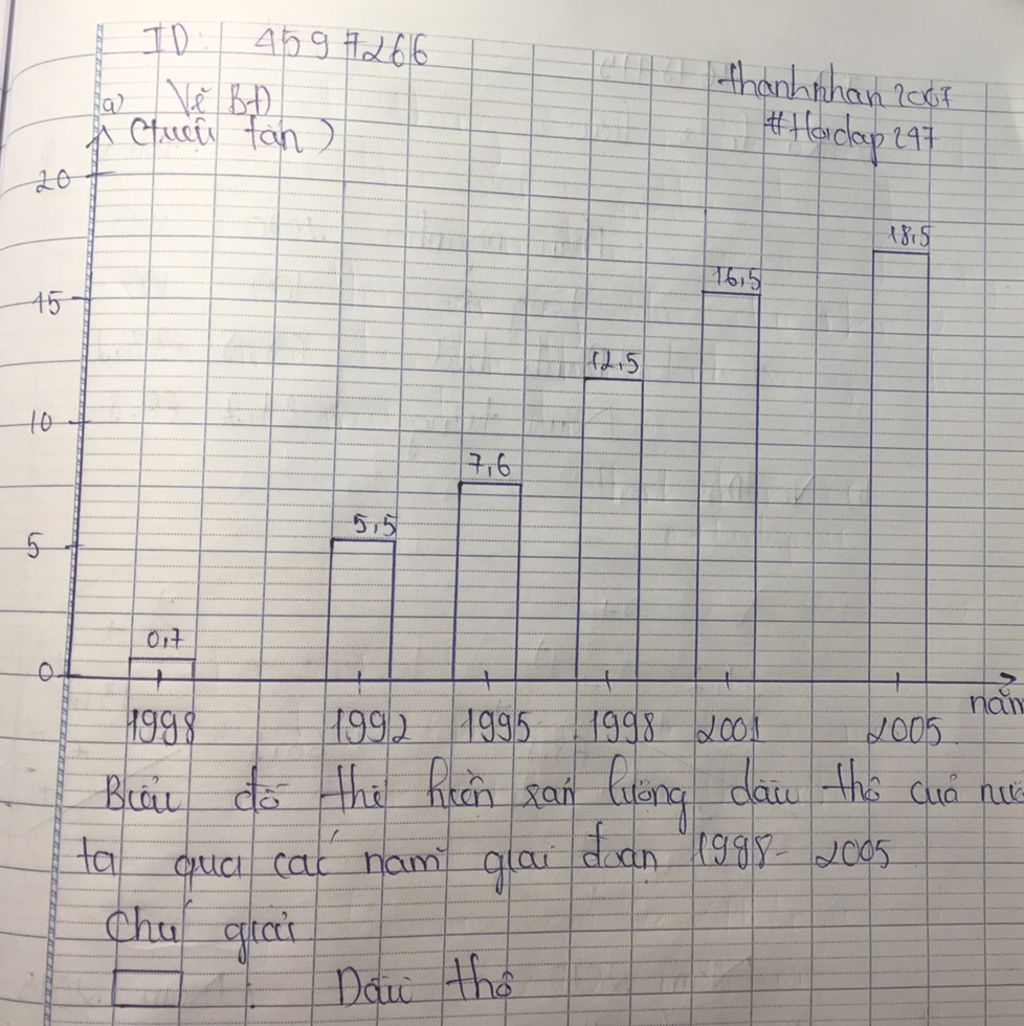 ID: 4597266
thanhnhan 2007
#Hoidap 247
a) Vẽ BĐ
(triệu tấn)
20
18,5
16,5
15
12,5
10
7,6
5,5
5
0,7
0
năm
1998 1992 1995 1998 2001 2005
Biểu đồ thể hiện sản lượng dầu thô của nước
ta qua các năm giai đoạn 1988 - 2005
Chú giải
: Dầu thô